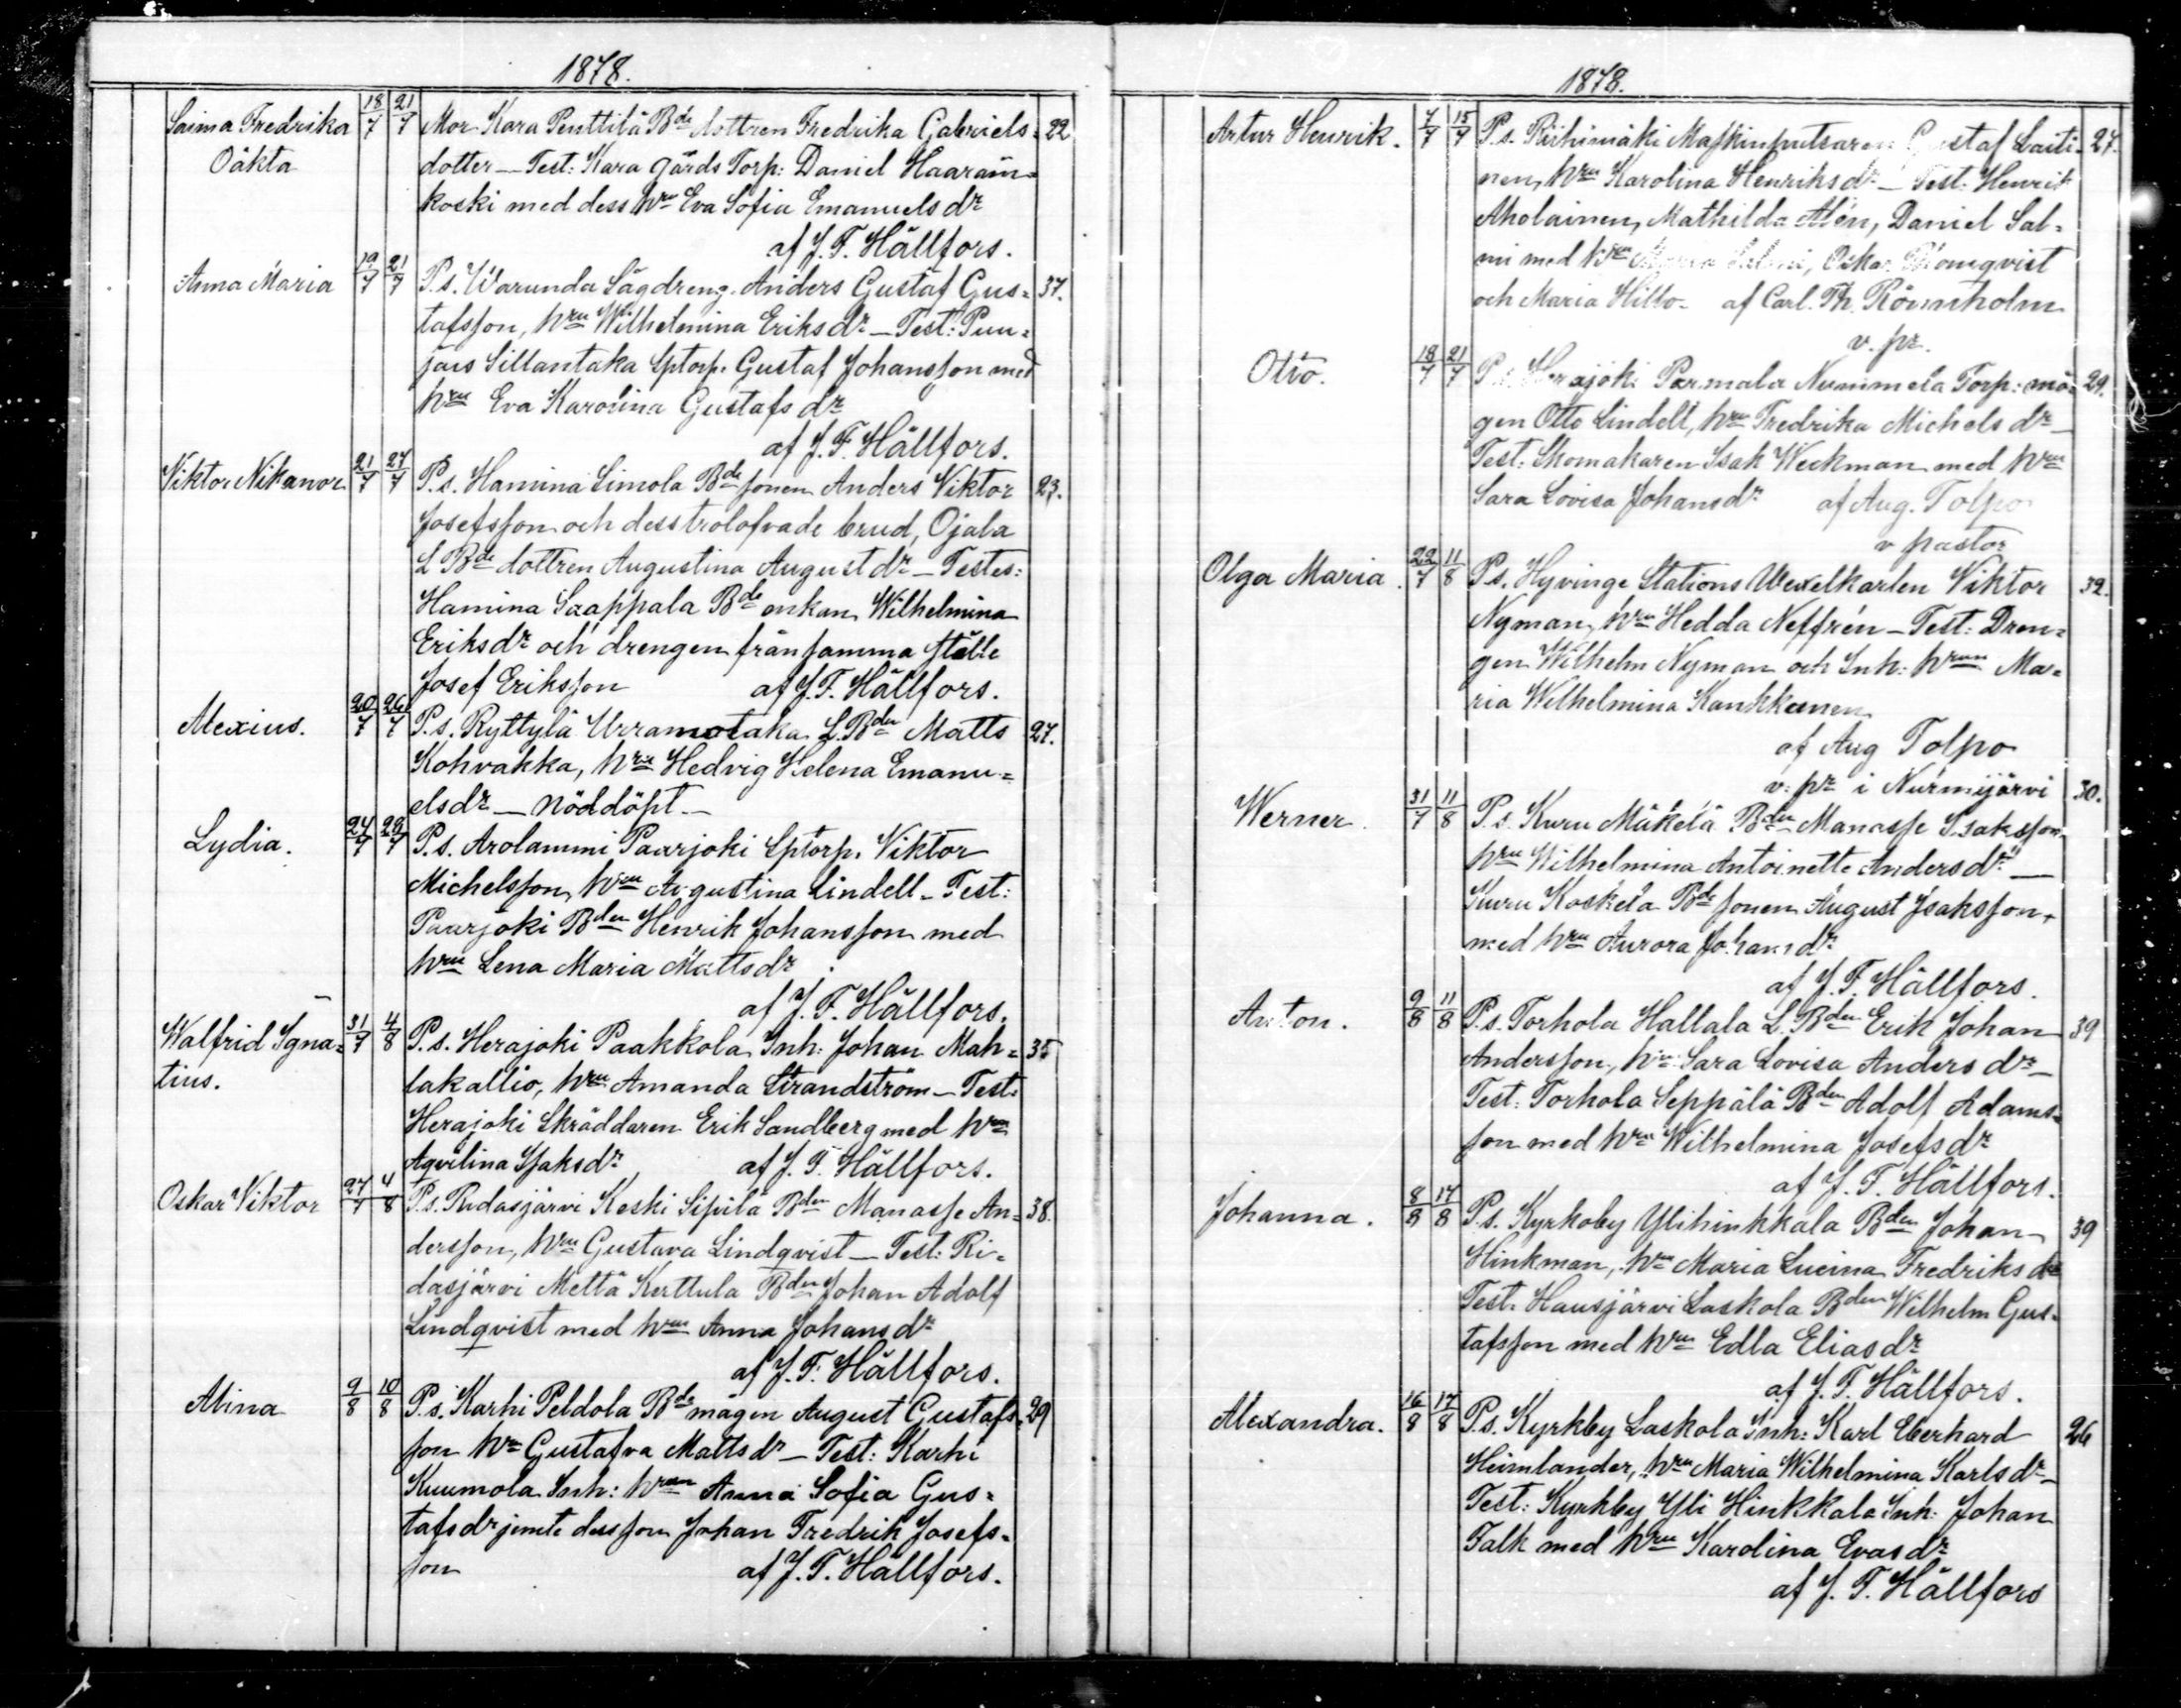 1878.
Saima Fredrika 18/7 21/7 Mor Kara Penttilä Bde dottren Fredrika Gabriels- 22
Oäkta dotter — Test: Kara gårds Torp: Daniel Haaran-
koski med dess hru Eva Sofia Emanuels dr
af J. F. Hällfors.
Anna Maria 19/7 21/7 P.s. Warunda Sågdreng Anders Gustaf Gus- 37.
tafsson, hru Wilhelmina Eriks dr — Test: Puu-
jais Sillantaka Sptorp. Gustaf Johansson med
hru Eva Karolina Gustafs dr
af J. F. Hällfors.
Viktor Nikanor 21/7 27/7 P.s. Hamina Simola Bde sonen Anders Viktor 23.
Josefsson och dess trolofvade brud, Ojala
L Bde dottren Augustina August dr — Testes:
Hamina Saappala Bde enkan Wilhelmina
Eriksdr och drengen från samma ställe
Josef Eriksson af J. F. Hällfors.
Alexius. 20/7 26/7 P.s. Ryttylä Urramotaka L. Bden Matts 27.
Kohvakka, hru Hedvig Helena Emanu-
elsdr — Nöddöpt —
Lydia. 24/7 28/7 P.s. Arolammi Paarjoki Sptorp. Viktor
Michelsson, hru Augustina Lindell - Test:
Paarjoki Bden Henrik Johansson med
hru Lena Maria Mattsdr
af J. F. Hällfors.
Walfrid Igna- 31/7 4/8 P.s. Herajoki Paakkola Inh: Johan Mah- 35
tius. lakallio, hru Amanda Strandström — Test:
Herajoki Skräddaren Erik Sandberg med hru
Aqvilina Isaksdr af J. F. Hällfors.
Oskar Viktor 27/7 4/8 P.s. Ridasjärvi Keski Sipilä Bden Manasse An- 38.
dersson, hru Gustava Lindqvist — Test: Ri-
dasjärvi Mettä Kerttula Bden Johan Adolf
Lindqvist med hru Anna Johans dr
af J. F. Hällfors.
Alina 9/8 10/8 P.s. Karhi Peldola Bde mågen August Gustafs- 29
son hru Gustafva Mattsdr — Test: Karhi
Kuumola Inh: hrun Anna Sofia Gus-
tafsdr jemte dess son Johan Fredrik Josefs-
son af J. F. Hällfors.
1878.
Artur Henrik. 7/7 15/7 P.s. Riihimäki Maskinputsaren Gustaf Laiti- 27.
nen, hru Karolina Henriksdr — Test: Henrik
Aholainen, Mathilda Alén, Daniel Sal-
mi med hru Salmi, Oskar Blomqvist
och Maria Hillo - af Carl. Th. Rönnholm
v. pr.
Otto. 18/7 21/7 P.s. Herajoki Parmala Nummela Torp: må- 29.
gen Otto Lindell, hru Fredrika Michels dr —
Test: Skomakaren Isak Weckman med hru
Sara Lovisa Johansdr af Aug. Tolpo
v pastor
Olga Maria. 22/7 11/8 P.s. Hyvinge Stations Wexelkarlen Viktor 32.
Nyman, hru Hedda Neffrén — Test: Dren-
gen Wilhelm Nyman och Inh: hrun Ma-
ria Wilhelmina Kankkunen
af Aug Tolpo
v. pr i Nurmijärvi
Werner. 31/7 11/8 P.s. Kuru Mäkelä Bden Manasse Isaksson, 30.
hru Wilhelmina Antoinette Andersdr —
Kuru Koskela Bde sonen August Isaksson,
med hru Aurora Johansdr
af J. F. Hällfors.
Anton. 9/8 11/8 P.s. Torhola Hallala L. Bden Erik Johan 39
Andersson, hru Sara Lovisa Anders dr —
Test: Torhola Seppälä Bden Adolf Adams-
son med hru Wilhelmina Josefsdr
af J. F. Hällfors.
Johanna. 8/8 17/8 P.s. Kyrkoby Ylihinkkala Bden Johan 39
Hinkman, hru Maria Lucina Fredriks dr
Test: Hausjärvi Laskola Bden Wilhelm Gus-
tafsson med hru Edla Eliasdr
af J. F. Hällfors.
Alexandra. 16/8 17/8 P.s. Kyrkby Laskola Inh: Karl Eberhard 26
Heimlander, hru Maria Wilhelmina Karlsdr —
Test: Kyrkby Yli Hinkkala Inh: Johan
Falk med hru Karolina Evasdr
af J. F. Hällfors